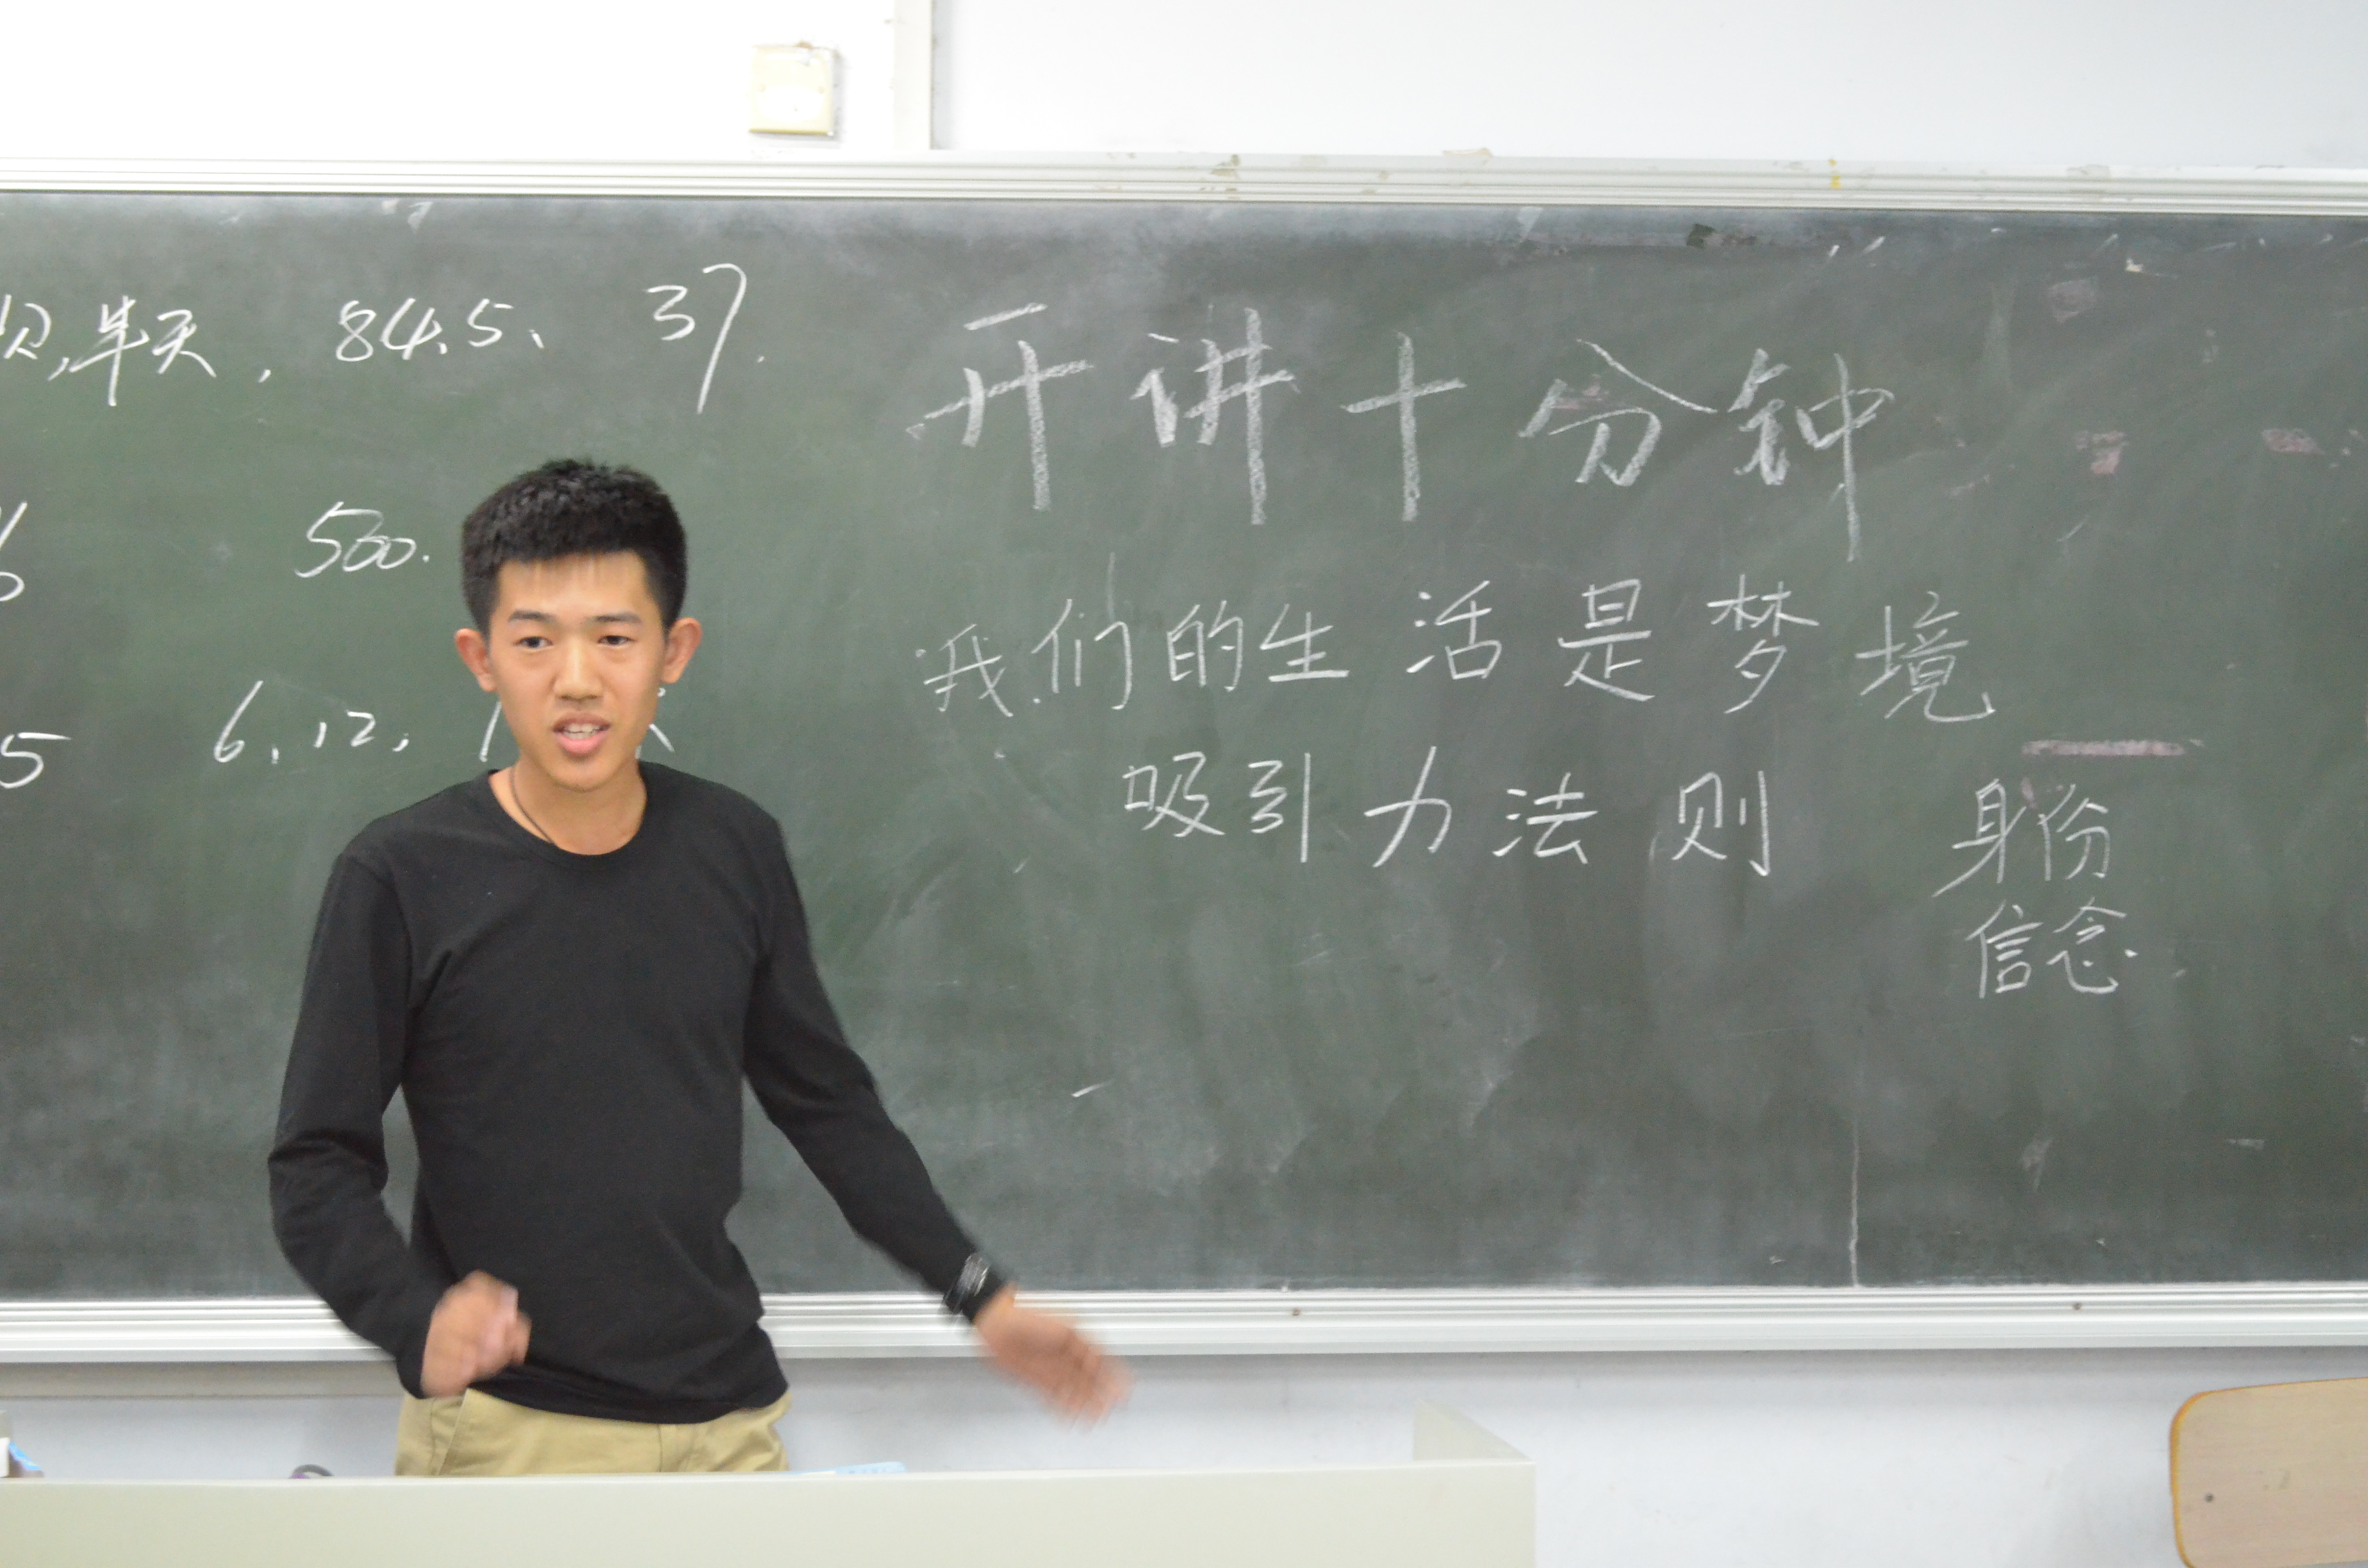 半天, 84.5、 37.
500.
5 6、12,
开讲十分钟
我们的生活是梦境
吸引力法则
身份
信念